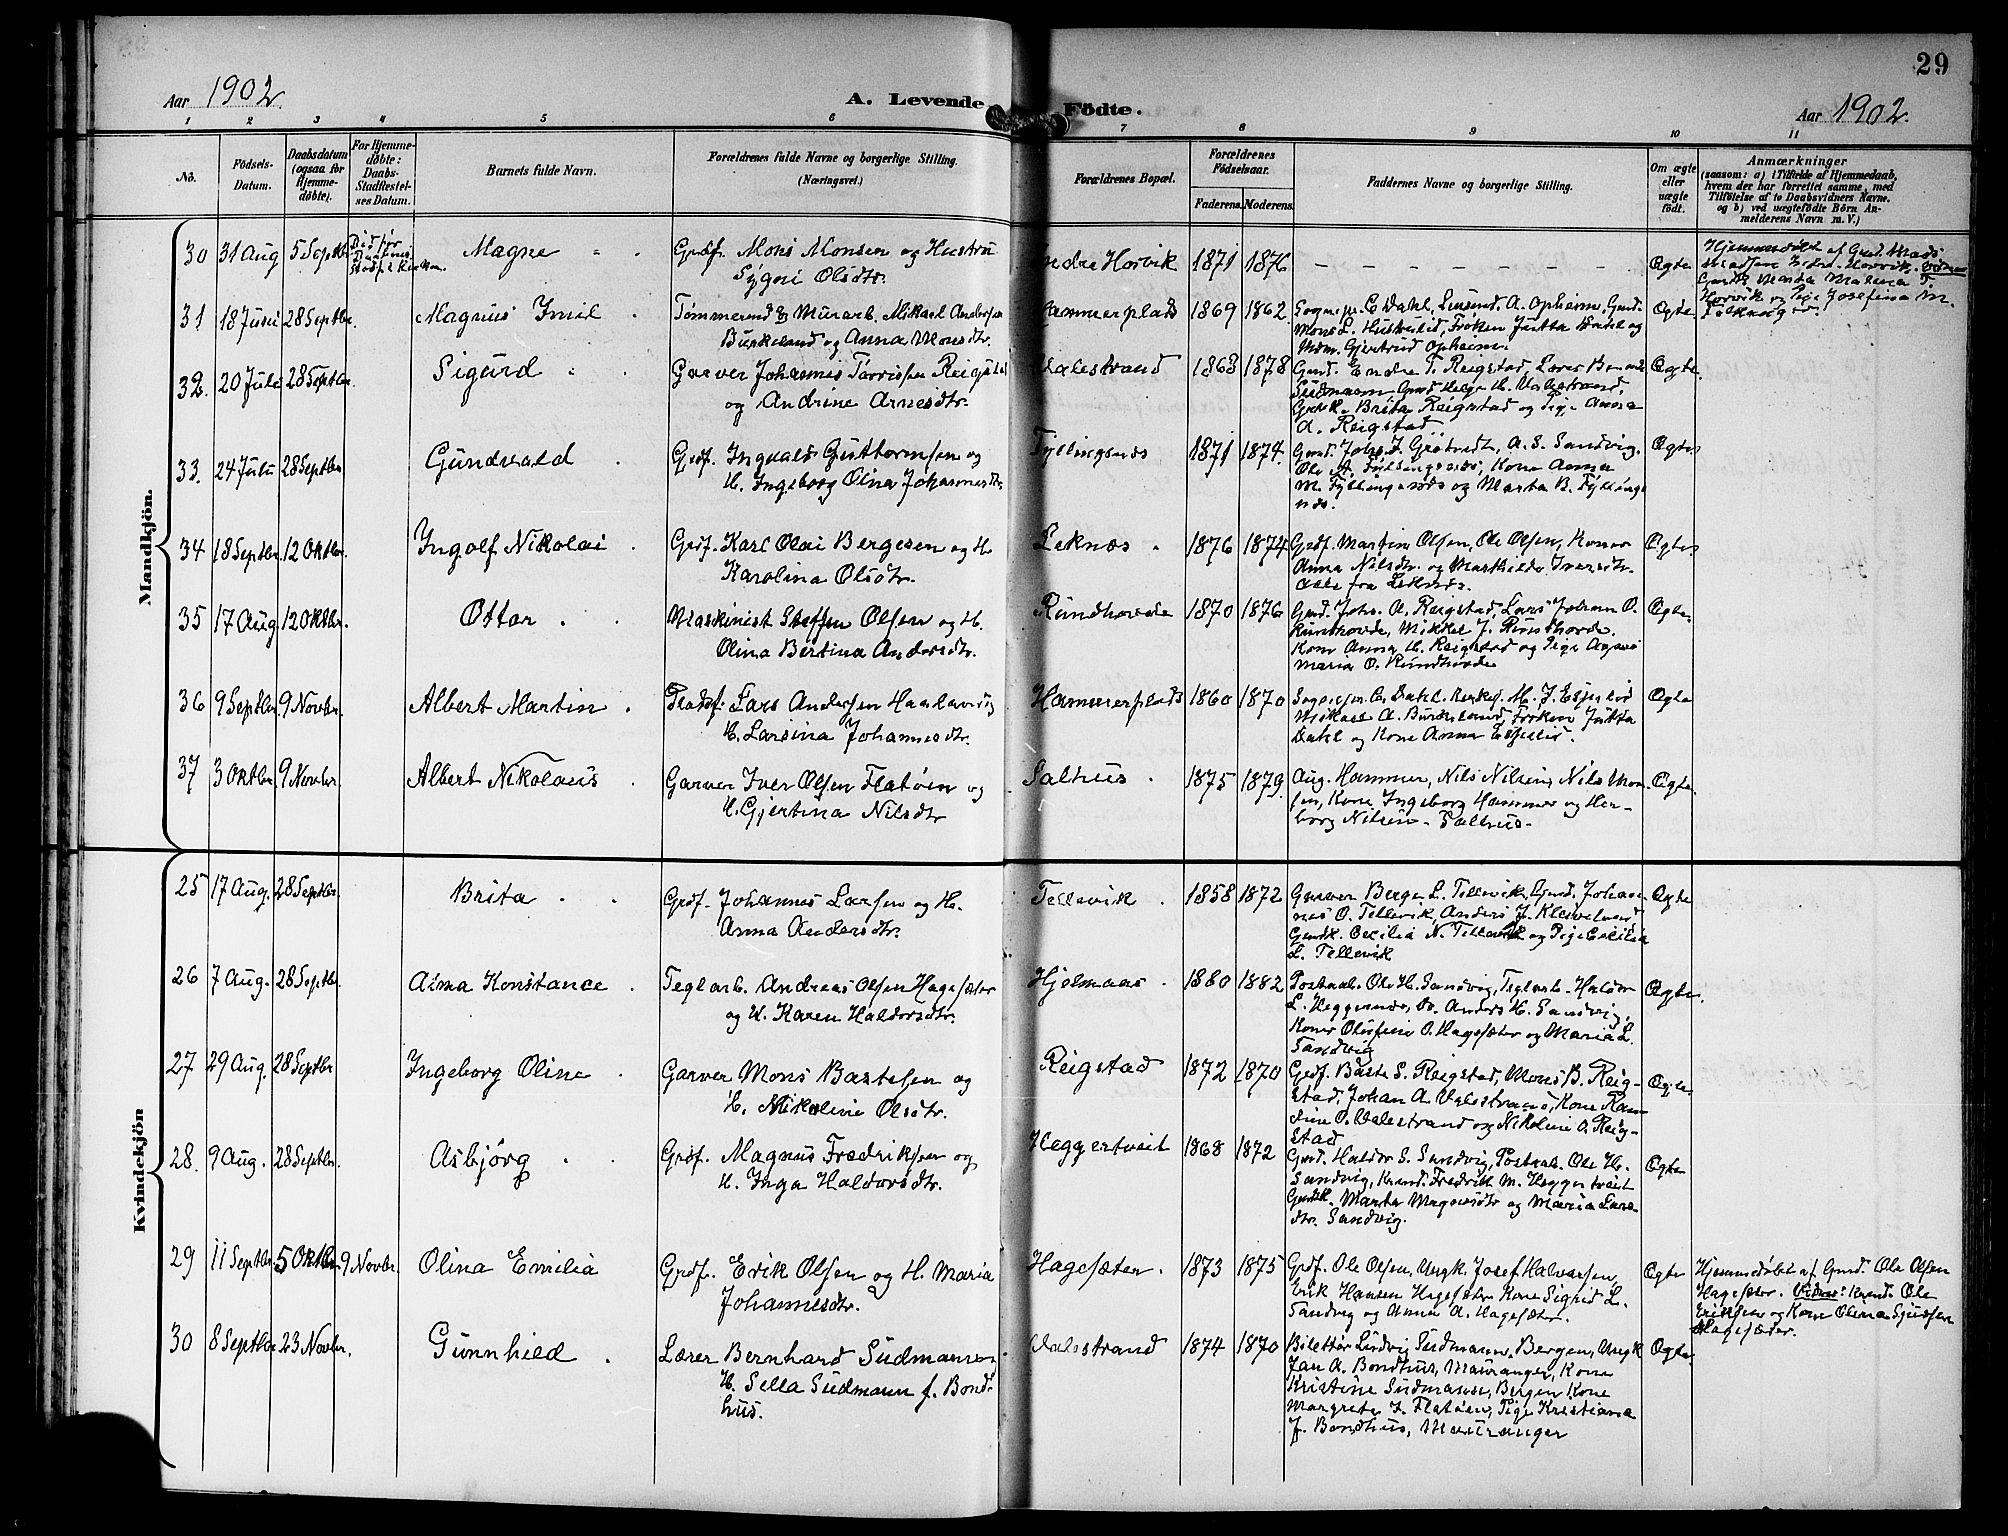 29
Aar 1902.
A. Levende Födte.
Aar 1902.
1 2 3 4 5 6 7 8 9 10 11
No.
Födsels-
Datum.
Daabsdatum
(ogsaa for
Hjemme-
døbte).
For Hjemme-
døbte:
Daabs-
Stadfæstel-
ses Datum.
Barnets fulde Navn.
Forældrenes fulde Navne og borgerlige Stilling.
(Næringsvei.)
Forældrenes Bopæl.
Forældrenes
Födselsaar.
Faderens. Moderens.
Faddernes Navne og borgerlige Stilling.
Om ægte
eller
uægte
født.
Anmærkninger
(saasom: a) i Tilfælde af Hjemmedaab,
hvem der har forrettet samme, med
Tilføielse af to Daabsvidners Navne,
og b) ved uægtefødte Børn An-
melderens Navn m. V.)
Mandkjön.
30 31 Aug 5 Septbr Magne Grdf. Mons Monsen og Hustru
Sygni Olsdtr.
Indre Horvik 1871 1876 Ægte Hjemmedøbt af Gmd. Mads
31 18 Juni 28 Septbr. Magnus Emil Tømmermd & Murarb. Mikael Andersen
Birkeland og Anna Monsdtr.
Hammerplads 1869 1862 Sognepr. C. Dahl, Lensmd. A. Opheim, Gmd.
Mons L. Hustvelid, Frøken Jutta Dahl og
Mdm. Gjertrud Opheim. Ægte.
32. 20 Juli 28 Septbr. Sigurd Garver Johannes Torrissen Reigstad
og Andrine Arnesdtr.
Valestrand 1868 1878 Gmd. Endre T. Reigstad, Lærer Bernard
Südmann, Gmd. Helge H. Valestrand,
Gmdk. Brita Reigstad og Pige Anna
A. Reigstad Ægte.
33. 24 Juli 28 Septbr Gundvald Grdf. Ingvald Guttormsen og
H. Ingeborg Olina Johannesdtr.
Fyllingsnæs 1871 1874. A. S. Sandvig,
Ole A. Fyllingsnæs, Kone Anna
M. Fyllingsnæs og Marta B. Fyllings-
næs. Ægte
34 18 Septbr. 12 Oktbr. Ingolf Nikolai Grdf. Karl Olai Bergesen og H.
Karolina Olsdtr.
Leknæs 1876 1874 Grdf. Martin Olsen, Ole Olsen, Koner
Anna Nilsdtr. og Marthilde Iversdtr.
alle fra Leknæs. Ægte
35 17 Aug 12 Oktbr. Ottar Maskinist Steffen Olsen og H.
Olina Bertina Andersdtr.
Rundhovde 1870 1876 Gmd. Johs. A. Reigstad, Lars Johan O.
Rundhovde, Mikkel J. Rundhovde,
Kone Anna H. Reigstad og Pige
Maria O. Rundhovde Ægte
36 9 Septbr 9 Novbr. Albert Martin Pladsf. Lars Andersen Haslavig
H. Larsina Johannesdtr.
Hammerplads 1860 1870 Sognepr. C. Dahl, Kirkes. M. J. Espelid
Mikael A. Birkeland, Frøken Jutta
Dahl og Kone Anna Espelid. Ægte
37 3 Oktbr. 9 Novbr. Albert Nikolaus Garver Iver Olsen Flatøen og
H. Gjertina Nilsdtr
Salhus 1875 1879. Aug. Hammer, Nils Nilsen, Nils Mon-
sen, Kone Ingeborg Hammer og Her-
borg Nilsen - Salhus. Ægte.
Kvindekjön
25 17 Aug. 28 Septbr. Brita Grdf. Johannes Larsen og H.
Anna Andersdtr.
Tellevik 1858 1872 Garver Berge L. Tellevik, Gmd. Johan-
nes O. Tellevik, Anders J. Kleiveland
Gmdk. Cecilia N. Tellevik og Pige Cecilia
L. Tellevik Ægte
26 7 Aug. 28 Septbr. Alma Konstance Teglarb. Andreas Olsen Hagesæter
og H. Karen Haldorsdtr.
Hjelmaas 1880 1882 Postaab. Ole H. Sandvig, Teglarb. Haldor
L. Heggernæs, Do. Anders H. Sandvig,
Koner Olufine O. Hagesæter og Maria L.
Sandvig Ægte.
27 29 Aug. 28 Septbr Ingeborg Oline Garver Mons Bastesen og
H. Nikoline Olsdtr.
Reigstad 1872 1870 Grdf. Baste S. Reigstad, Mons B. Reig-
stad, Johan A. Valestrand, Kone
O. Valestrand og Nikoline O. Reig-
stad Ægte
28. 9 Aug. 28 Septbr. Asbjörg Grdf. Magnus Fredriksen og
H. Inga Haldorsdtr.
Heggertveit 1868 1872 Gmd. Haldor S. Sandvig, Postaab. Ole H.
Sandvig, Fredrik M. Heggertveit
Gmdk. Marta Magnesdtr og Maria Lars-
dtr. Sandvig. Ægte
29 11 Septbr. 5 Oktbr. 9 Novbr. Olina Emilia Grdf. Erik Olsen og H. Maria
Johannesdtr.
Hagesæter 1873 1875 Grdf. Ole Olsen, Ungk. Josef Halvorsen,
Erik Hansen Hagesæter, Kone Sigrid L.
Sandvig og Anna A. Hagesæter. Ægte Hjemmedøbt af Gmd. Ole Olsen
Hagesæter. Vidner: Ole
Eriksen og Kone Olina
Hagesæter.
30 8 Septbr 23 Novbr. Gunnhild Lærer Bernhard Südmann
H. Sella Südmann f. Bond-
hus.
Valestrand 1874 1870 Billettør Ludvig Südmann, Bergen, Ungk
Jan A. Bondhus, Mauranger, Kone
Kristine Südmann, Bergen, Kone
Margrete J. Flatøen, Pige Kristiana
J. Bondhus, Mauranger Ægte.